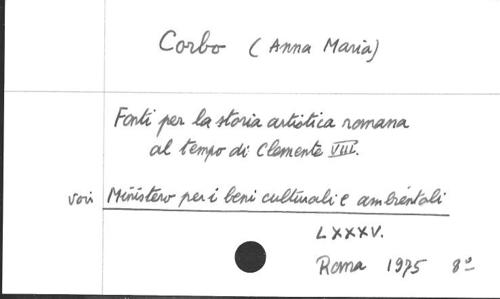 Corbo (Anna Maria)
Fonti per la storia artistica romana
al tempo di Clemente VIII.
voir Ministero per i beni culturali e ambientali
LXXXV.
Roma 1975 8º